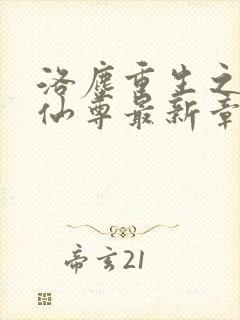 洛塵重生之
仙尊最新章
帝玄21